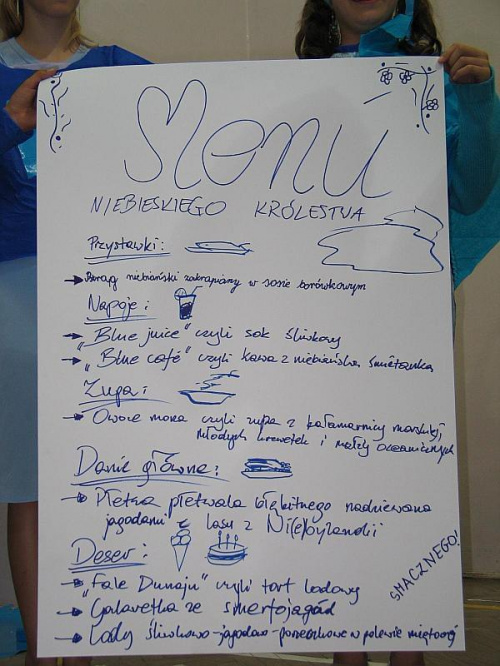 Menu
NIEBIESKIEGO KRÓLESTWA
Przystawki:
→ Pstrąg niebiański zakrapiany w sosie borówkowym
Napoje:
→ „Blue juice" czyli sok śliwkowy
→ „Blue café" czyli kawa z niebieską śmietanką
Zupa:
→ Owoce moza czyli zupa z kałamarnicy morskiej,
młodych krewetek i małży oceanicznych
Danie główne:
→ Płetwa płetwala błękitnego nadziewana
jagodami z lasu z Ni(e)bylandii
Deser:
→ „Fale Dunaju" czyli tort lodowy
→ Galaretka ze smerfojagód
→ Lody śliwkowo-jagodowo-porzeczkowe w polewie miętowej
SMACZNEGO!